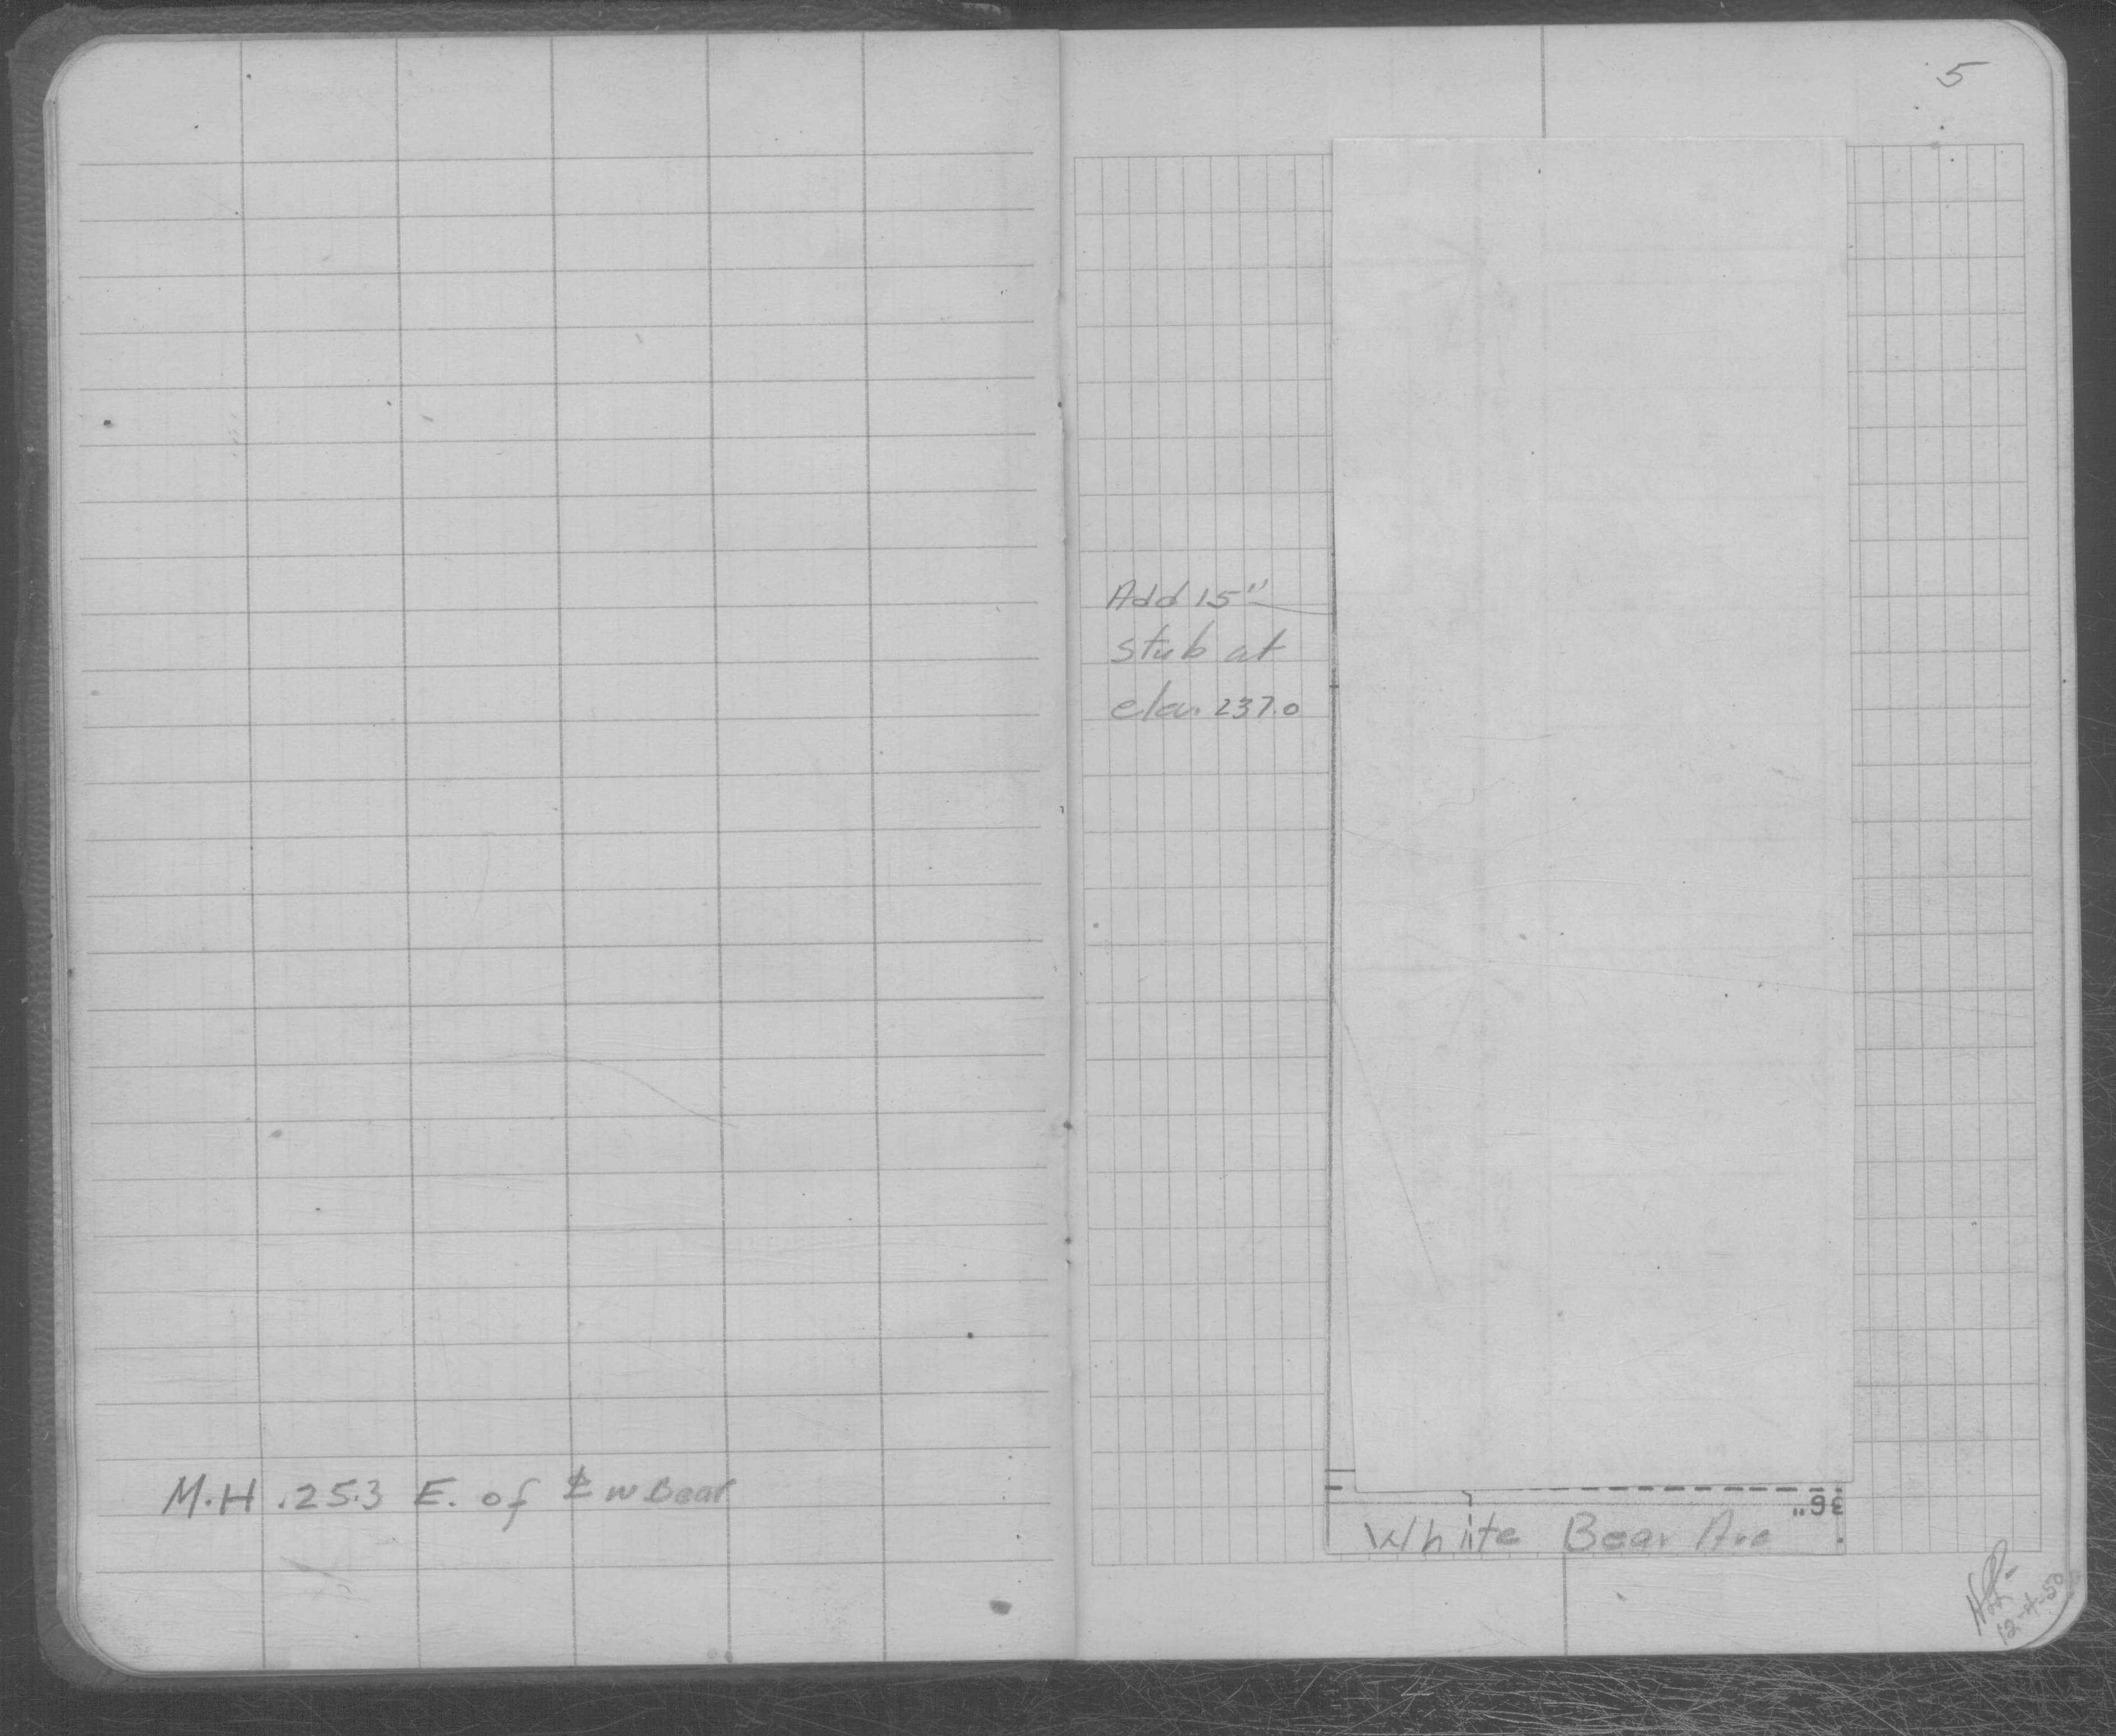 M.H. 25.3 E. of ℄ W Bear
5
Add 15"
stub at
elev. 237.0
36"
White Bear Ave
12-4-50